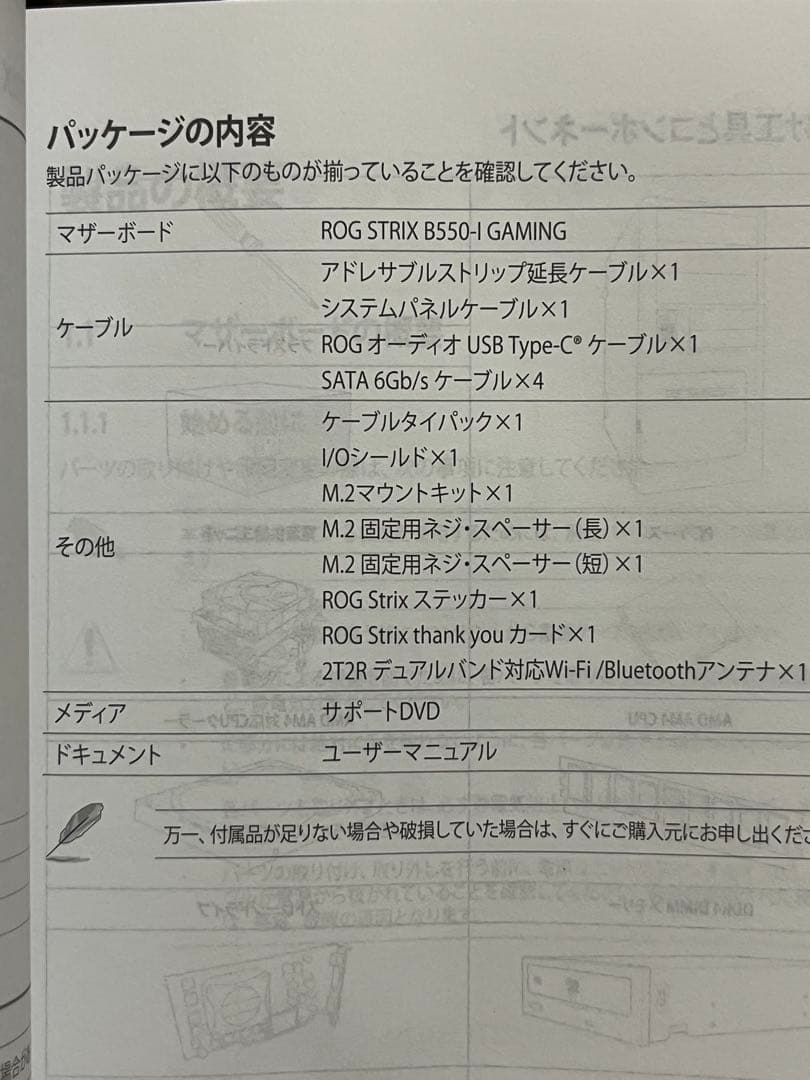 パッケージの内容
製品パッケージに以下のものが揃っていることを確認してください。
マザーボード
ROG STRIX B550-I GAMING
ケーブル
アドレサブルストリップ延長ケーブル×1
システムパネルケーブル×1
ROG オーディオ USB Type-C® ケーブル×1
SATA 6Gb/s ケーブル×4
その他
ケーブルタイパック×1
I/Oシールド×1
M.2マウントキット×1
M.2 固定用ネジ・スペーサー（長）×1
M.2 固定用ネジ・スペーサー（短）×1
ROG Strix ステッカー×1
ROG Strix thank you カード×1
2T2R デュアルバンド対応Wi-Fi /Bluetoothアンテナ×1
メディア
サポートDVD
ドキュメント
ユーザーマニュアル
万一、付属品が足りない場合や破損していた場合は、すぐにご購入元にお申し出くだ